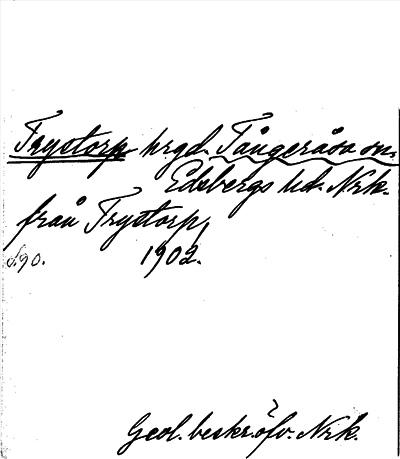 Trystorp hrgd. Tångeråsa sn.
Edsbergs hd. Nrk.
från Trystorp,
s. 90. 1902.
Geol. beskr. öfv. Nrk.